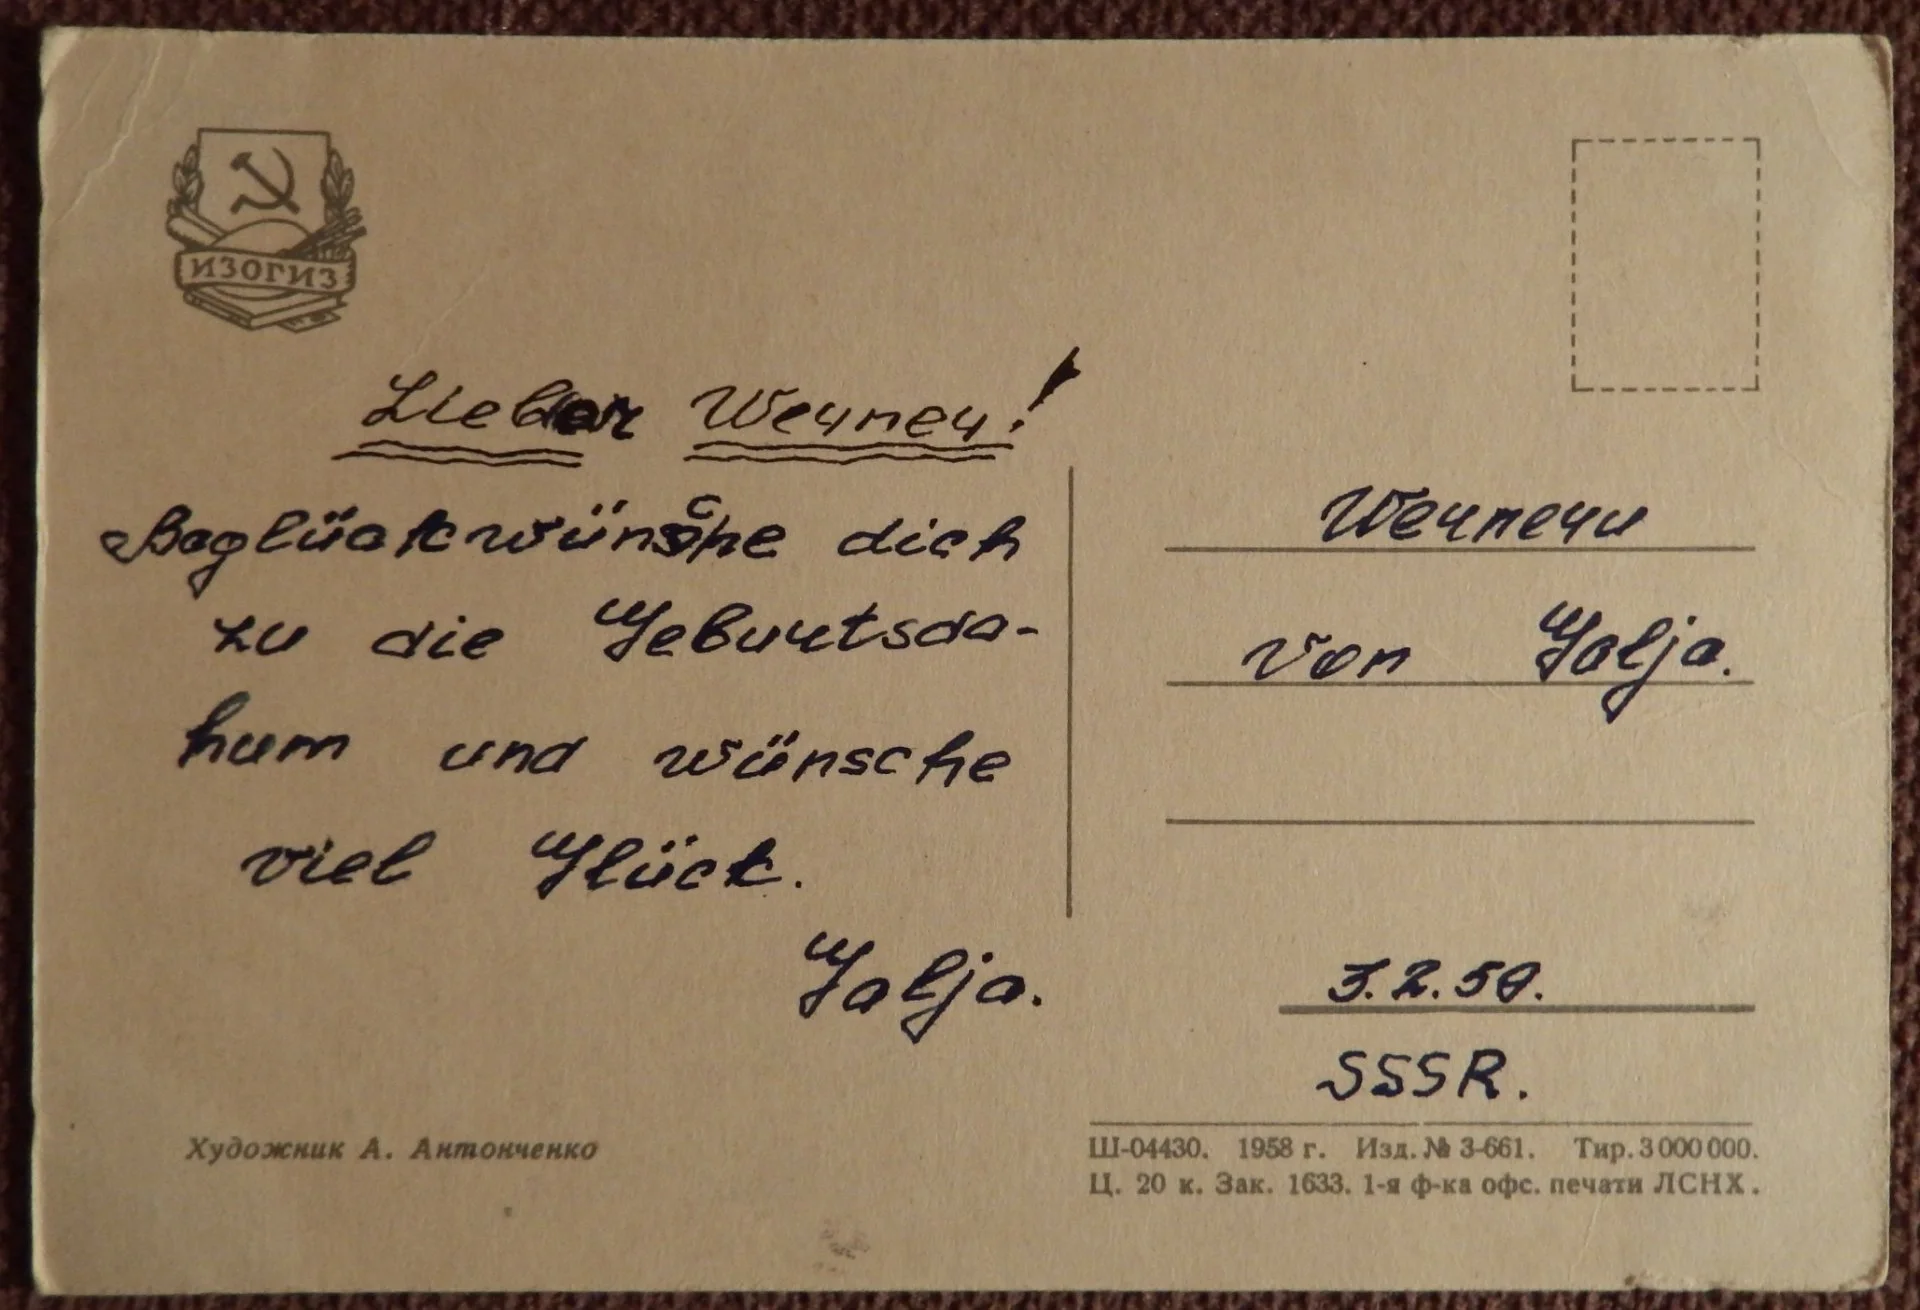 ИЗОГИЗ
Lieber Werner!
Baglückwünsche dich
zu die Geburtsda-
hum und wünsche
viel Glück.
Galja.
Художник А. Антонченко
Werneru
von Galja.
3.2.59.
SSSR.
Ш-04430. 1958 г. Изд. № 3-661. Тир. 3 000 000.
Ц. 20 к. Зак. 1633. 1-я ф-ка офс. печати ЛСНХ.